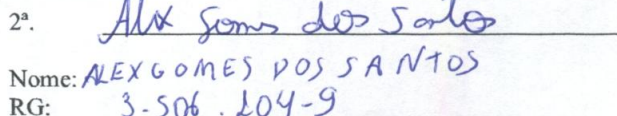 2ª. Alex Gomes dos Santos
Nome: ALEX GOMES DOS SANTOS
RG: 3.506.204-9